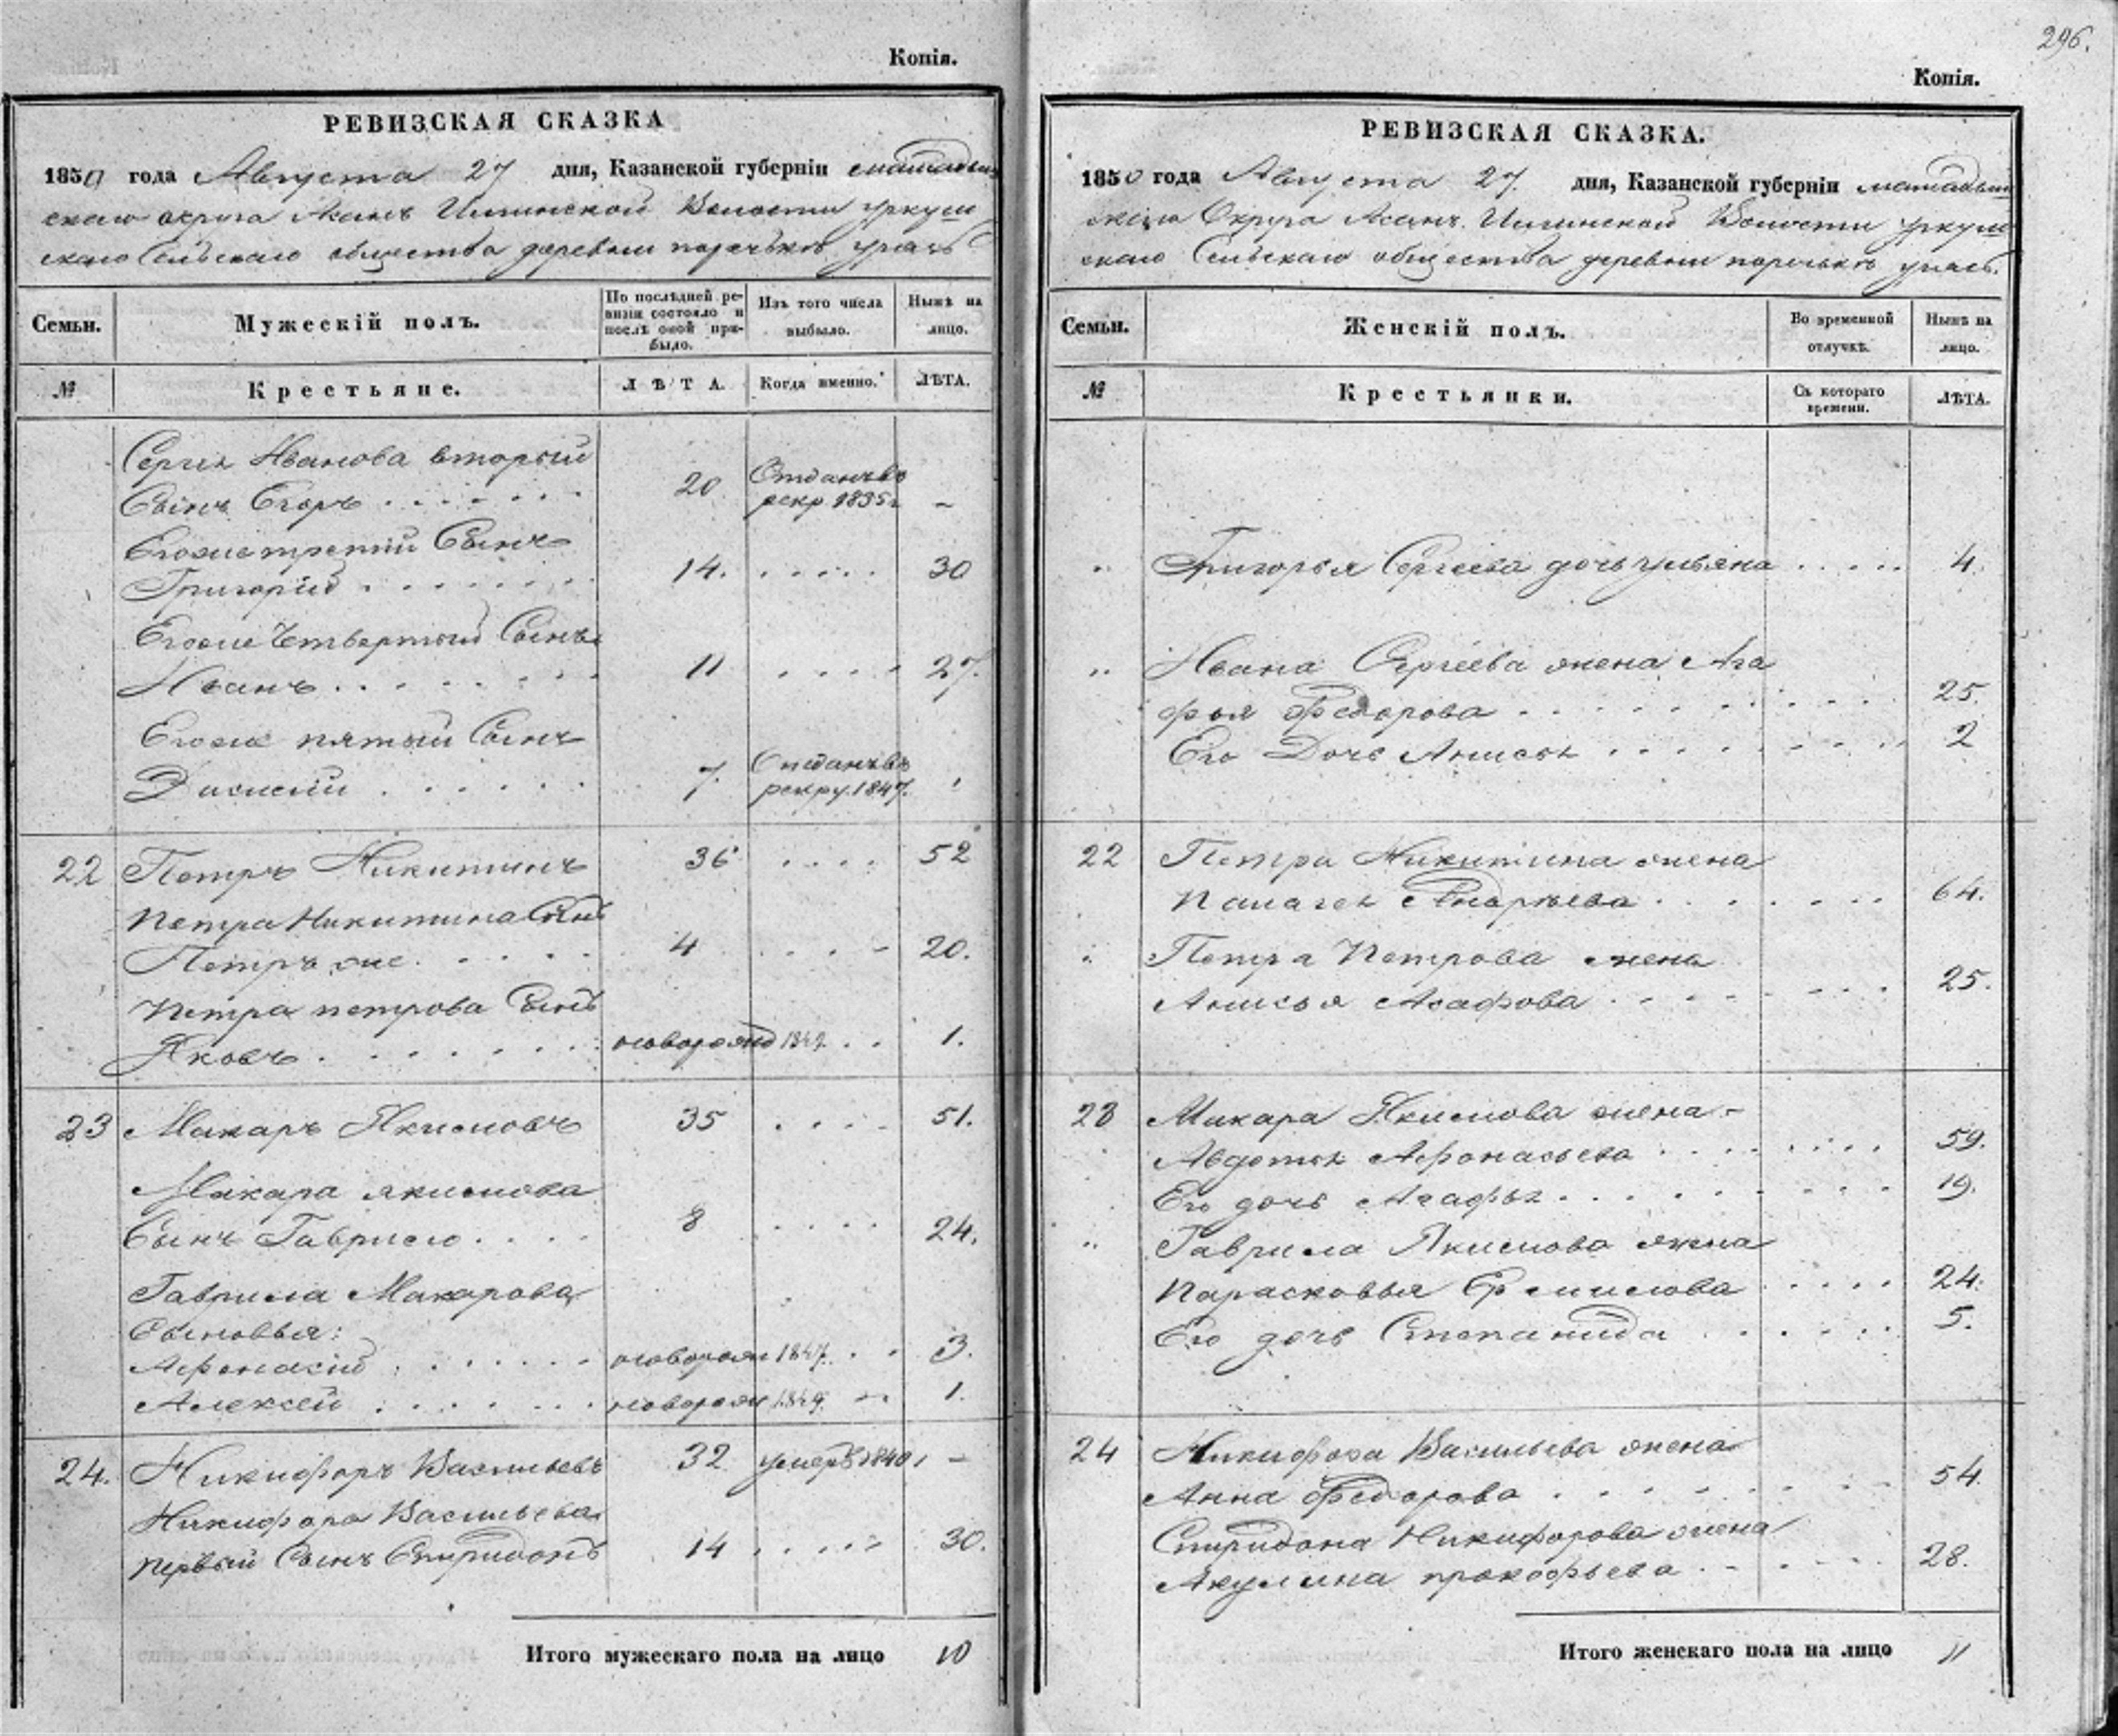 Копія.
РЕВИЗСКАЯ СКАЗКА
1850 года Августа 27 дня, Казанской губерніи мамадыш
скаго округа Асанъ Илгинской Волости уркуш
скаго Сельскаго общества деревни порѣчьковъ
Семьи.
Мужескій полъ.
По послѣдней ре-
визіи состояло и
послѣ оной при-
было.
Изъ того числа
выбыло.
Нынѣ на
лицо.
№
Крестьяне.
ЛѢТА.
Когда именно.
ЛѢТА.
Сергея Иванова вторый
Сынъ Егоръ . . . . . . 20 Отданъ въ
рекр 1835г –
Егоже третій Сынъ
Григорій . . . . . . 14. . . . . . 30
Егоже Четвертый Сынъ
Иванъ . . . . . . . 11 . . . . 27.
Егоже пятый Сынъ
. . . . . . 7. Отданъ въ
рекру. 1847.
22 Петръ Никитинъ 36 . . . . 52
Петра Никитина Сынъ
Петръ же . . . . . 4 . . . . 20.
Петра петрова Сынъ
Яковъ . . . . . . . новорожд 1849. . . 1.
23 Макаръ Якимовъ 35 . . . . 51.
Макара якимова
Сынъ Гаврило . . . . 8 . . . . 24.
Гаврила Макарова
Сыновья:
Афонасій . . . . . . новорож 1847. . . 3.
Алексей . . . . . . новорож 1849. 1.
24. Никифоръ Васильевъ 32 умеръ 1840, –
Никифора Васильева
первый Сынъ Спиридонъ 14 . . . . . 30.
Итого мужескаго пола на лицо 10
296.
Копія.
РЕВИЗСКАЯ СКАЗКА.
1850 года Августа 27. дня, Казанской губерніи мамадыш
скаго Округа Асанъ. Илгинской Волости уркуш
скаго Сельскаго общества деревни порѣчьковъ
Семьи.
Женскій полъ.
Во временной
отлучкѣ.
Нынѣ на
лицо.
№
Крестьянки.
Съ котораго
времени.
ЛѢТА.
" Григорья Сергеева дочь ульяна . . . . . 4.
" Ивана Сергеева жена Ага
фья Федорова . . . . . . . . . 25.
Его Дочь Анисья . . . . . . . . 2
22 Петра Никитина жена
Палагея Андреева . . . . . . . 64.
" Петра Петрова жена
Анисья Агафова . . . . . . . 25.
23 Макара Якимова жена –
Авдотья Афонасьева . . . . . . . 59.
Его дочь Агафья . . . . . . . . 19.
" Гаврила Якимова жена
Парасковья Ермилова . . . . 24.
Его дочь Степанида . . . . . . 5.
24 Никифора Васильева жена
Анна Федорова . . . . . . . . 54.
Спиридона Никифорова жена
Акулина прокофьева . . . . . 28.
Итого женскаго пола на лицо 11